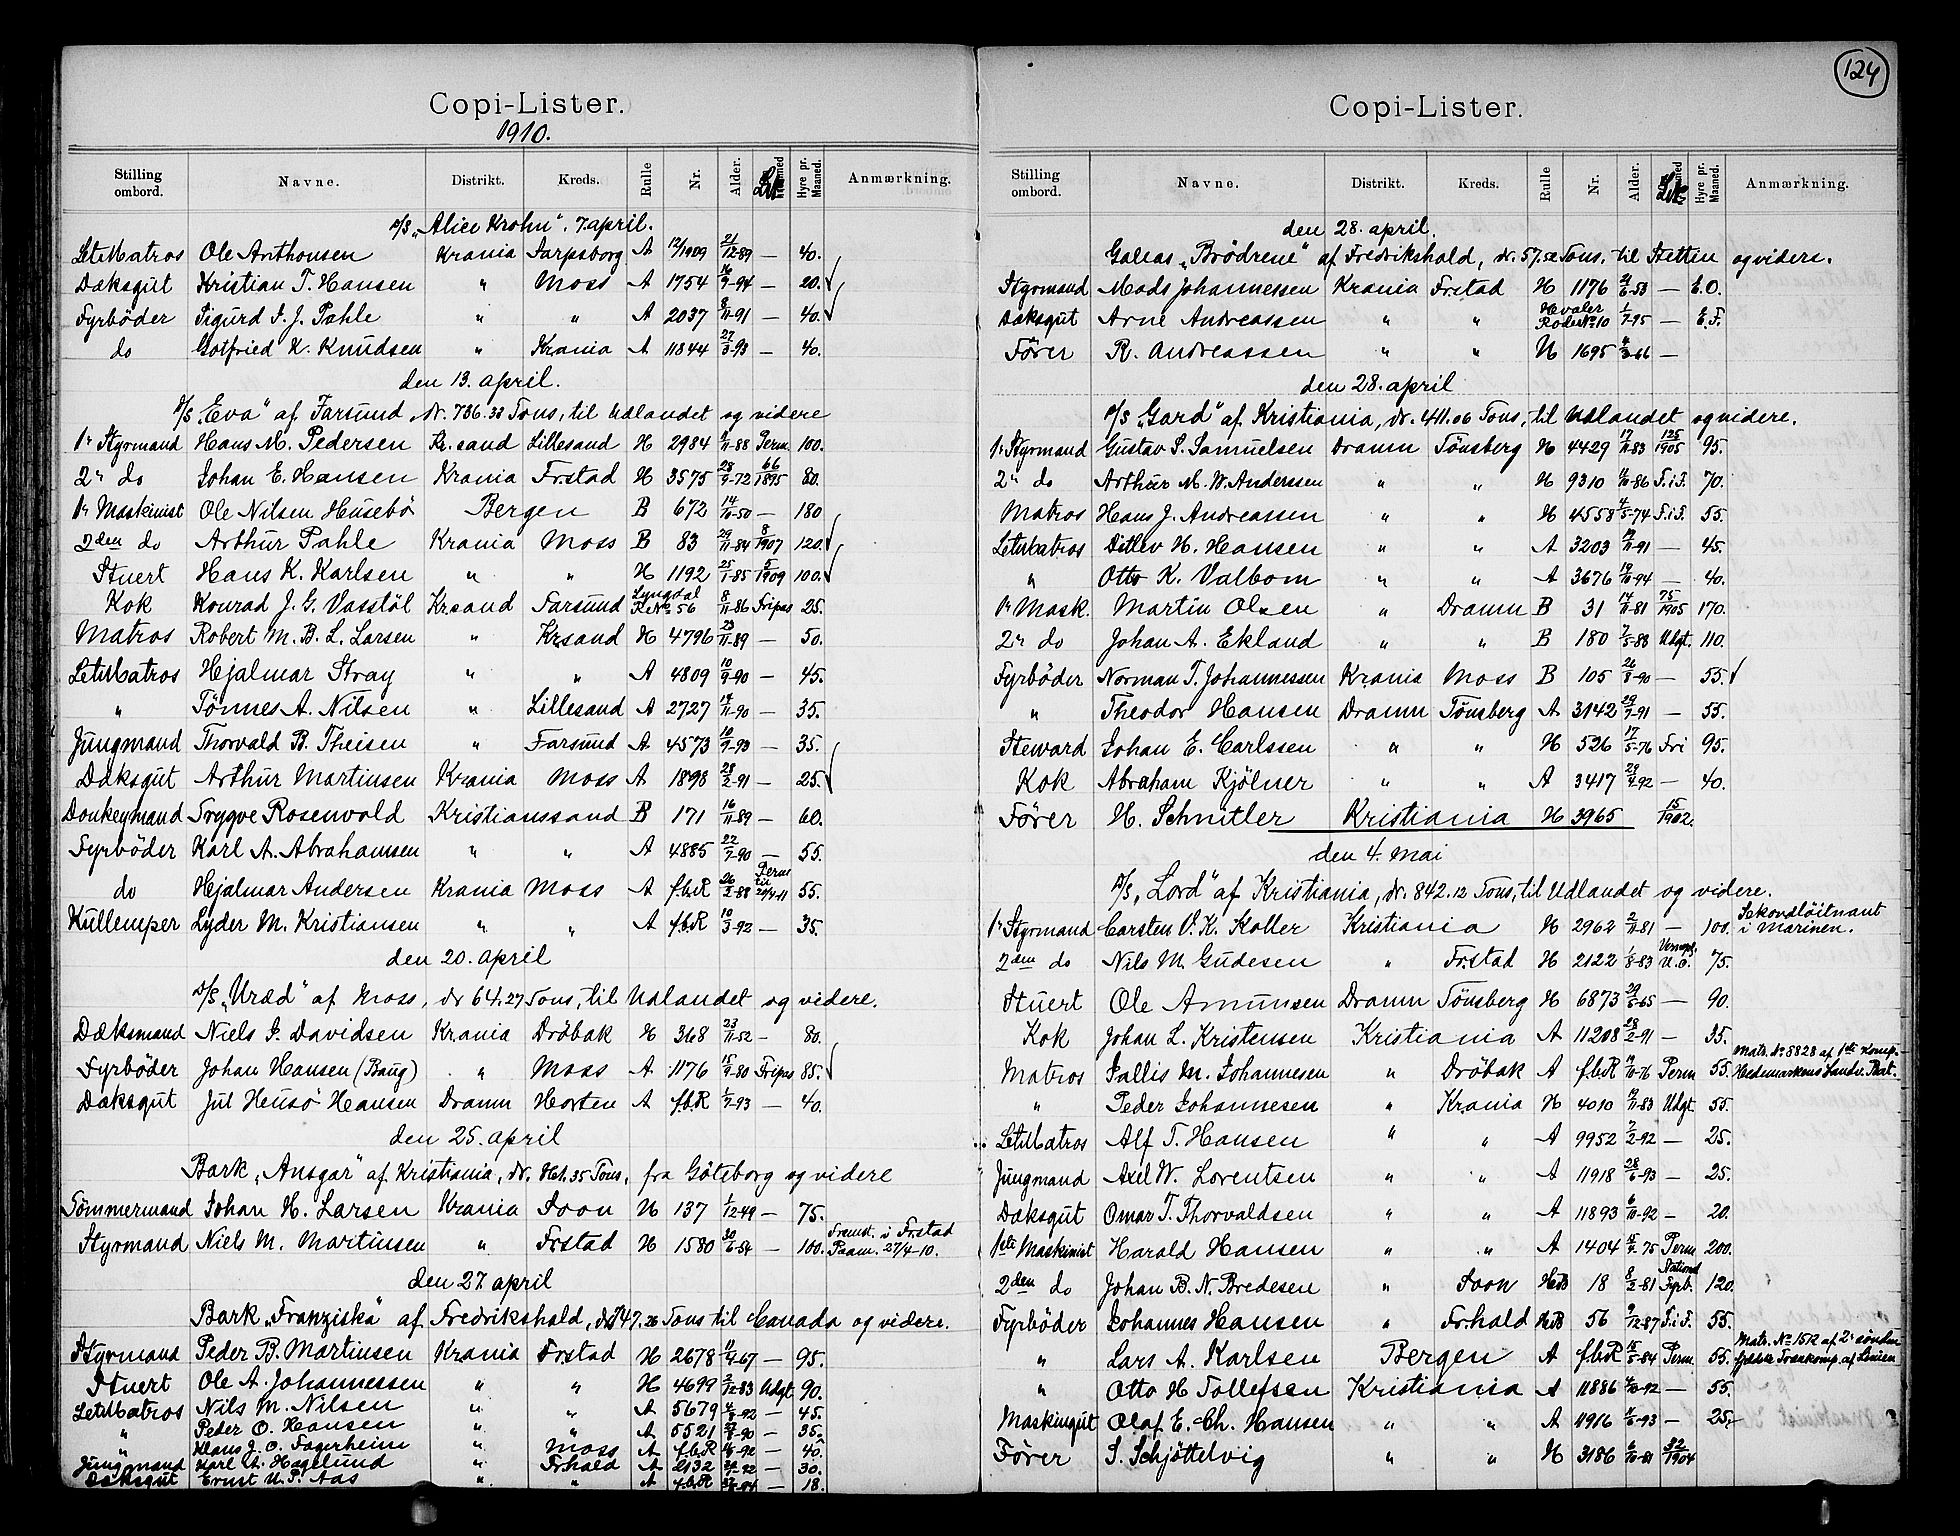 124
Copi-Lister.
1910.
Stilling ombord. Navne. Distrikt. Kreds. Rulle Nr. Alder. Hyre pr. Maaned. Anmærkning.
"Alice Krohn". 7. april.
LetMatros Ole Anthonsen Krania Sarpsborg A 12/1909 21/12-89 — 40.
Dæksgut Kristian T. Hansen " Moss A 1754 16/9-94 — 20.
Fyrböder Sigurd S. J. Pahle " " A 2037 8/11-91 — 40.
do Gotfried K. Knudsen " Krania A 11844 27/3-93 — 40.
den 13. april.
"Eva" af Farsund, dr. 736.33 Tons, til Udlandet og videre
1r Styrmand Hans M. Pedersen Kr.sand Lillesand H 2984 11-88 Perm. 100.
2n do Johan E. Hansen Krania Fr.stad H 3575 28/9-72 66/1895 80.
1r Maskinist Ole Nilsen Husebö Bergen B 672 14/10-50 — 180
2den do Arthur Pahle Krania Moss B 83 29/11-84 8/1907 120.
Stuert Hans K. Karlsen " " H 1192 25/1-85 5/1909 100.
Kok Konrad J. G. Vasstöl Kr.sand Farsund Lyngdal R. No 56 8/11-86 Fripas 25.
Matros Robert M. B. L. Larsen " Krsand H 4796 23/11-89 — 50.
LetMatros Hjalmar Stray " " A 4809 10/9-90 — 45.
" Tönnes A. Nilsen " Lillesand A 2727 14/11-90 — 35.
Jungmand Thorvald B. Theisen " Farsund A 4573 10/9-93 — 35.
Dæksgut Arthur Martinsen Krania Moss A 1898 28/2-91 — 25.
Donkeymand Trygve Rosenvold Kristianssand B 171 16/11-89 — 60.
Fyrböder Karl A. Abrahamsen " " A 4885 22/7-90 — 55.
do Hjalmar Andersen Krania Moss A f.b.R 26/5-88 Perm til 20/4-11 55.
Kullemper Lyder M. Kristiansen " " A f.b.R 10/3-92 — 35.
den 20. april
"Uræd" af Moss, dr 64.27 Tons, til Udlandet og videre.
Dæksmand Niels J. Davidsen Krania Dröbak H 368 23/11-52 — 80.
Fyrböder Johan Hansen (Baug) " Moss A 1176 15/9-80 Fripas 85.
Dæksgut Jul Heusö Hansen Dramn Horten A f.b.R 1/7-93 — 40.
den 25. april
Bark "Ansgar" af Kristiania, dr. 35 Tons, fra Göteborg og videre
Tömmermand Johan H. Larsen Krania Soon H 137 1/12-49 — 75.
Styrmand Niels M. Martinsen " Fr.stad H 1580 30/6-54 — 100. Fremst. i Fr.stad Paam. 27/4-10.
den 27. april
Bark "Franziska" af Fredrikshald, dr. 747.26 Tons til Canada og videre.
Styrmand Peder B. Martinsen Krania Fr.stad H 2678 11/4-67 — 95.
Stuert Ole A. Johannessen " " H 4699 2/12-83 Udgt 90.
LetMatros Nils M. Nilsen " " A 5679 4/8-92 — 45.
" Peder O. Hansen " " A 5521 90 — 35.
" Hans J. O. Fagerheim " Moss A f.b.R 92 — 40.
Jungmand Karl A. Hagelund " Fr.hald A 2132 — 30.
Dæksgut Ernst U. P. Aas " " A f.b.R — 18.
Copi-Lister.
Stilling ombord. Navne. Distrikt. Kreds. Rulle Nr. Alder. Hyre pr. Maaned. Anmærkning.
den 28. april.
Galeas "Brödrene" af Fredrikshald, dr. 57.52 Tons, til Stettin og videre.
Styrmand Mads Johannessen Krania Fr.stad H 1176 6-53 — E.O.
Dæksgut Arne Andreassen " " Hvaler Rode No 10 1/7-95 — E.F.
Förer R. Andreassen " " H 1695 3-66 —
den 28. april
"Gard" af Kristiania, dr. 411.06 Tons, til Udlandet og videre.
1r Styrmand Gustav S. Samuelsen Dramn Tönsberg H 4429 17/11-83 125/1905 95.
2n do Arthur M. W. Anderssen " " H 9310 10-86 F.i.F. 70.
Matros Hans J. Andreassen " " H 4558 5-74 F.i.F. 55.
LetMatros Ditlev H. Hansen " " A 3203 11-91 — 45.
" Otto K. Valbom " " A 3676 19/10-94 — 40.
1r Mask. Martin Olsen " Dramn B 31 14/11-81 75/1905 170.
2n do Johan A. Ekland " " B 180 7/5-83 Udgt. 110.
Fyrböder Norman T. Johannessen Krania Moss B 105 26/8-90 — 55.
" Theodor Hansen Dramn Tönsberg A 3142 29/7-91 — 55.
Steward Johan E. Carlssen " " H 526 17/5-76 Fri 95.
Kok Abraham Kjölner " " A 3417 29/4-92 — 40.
Förer H. Schnitler Kristiania H 3965 15/1902.
den 4. Mai
"Lord" af Kristiania, dr. 842.12 Tons, til Udlandet og videre.
1r Styrmand Carsten V. K. Koller Kristiania H 2962 2/11-81 — 100. Sekondlöitnant i Marinen.
2den do Nils M. Gudesen " Fr.stad H 2122 1/8-83 U.O. 75.
Stuert Ole Amunsen Dramn Tönsberg H 6873 29/5-65 — 90.
Kok Johan L. Kristensen Kristiania A 11208 28/2-91 — 35.
Matros Jallis M. Johannesen " Dröbak A f.b.R 10-76 Perm 55. Matr. No 8828 af 1ste Komp. Hedemarkens Landv. Bat.
" Peder Johannesen " Krania H 4010 11-83 Udgt. 55.
LetMatros Alf T. Hansen " " A 9952 7/2-92 — 25.
Jungmand Axel W. Lorentsen " " A 11918 28/6-93 — 25.
Dæksgut Omar T. Thorvaldsen " " A 11893 6/10-92 — 20.
1ste Maskinist Harald Hansen " " A 1404 75 Perm 200.
2den do Johan B. N. Bredesen " Soon 18 8/2-81 120.
Fyrböder Johannes Hansen " Fr.hald 56 9/12-87 F.i.F. 55.
" Lars A. Karlsen Bergen A f.b.R 5-84 Perm. 55. Matr. No 1512 af 2n af Linien
" Otto H Tollefsen Kristiania A 11886 10-92 — 55.
Maskingut Olaf E. Ch. Hansen " " A 11916 6-93 — 25.
Förer S. Schjöttelvig " " H 3186 10-81 32/1904